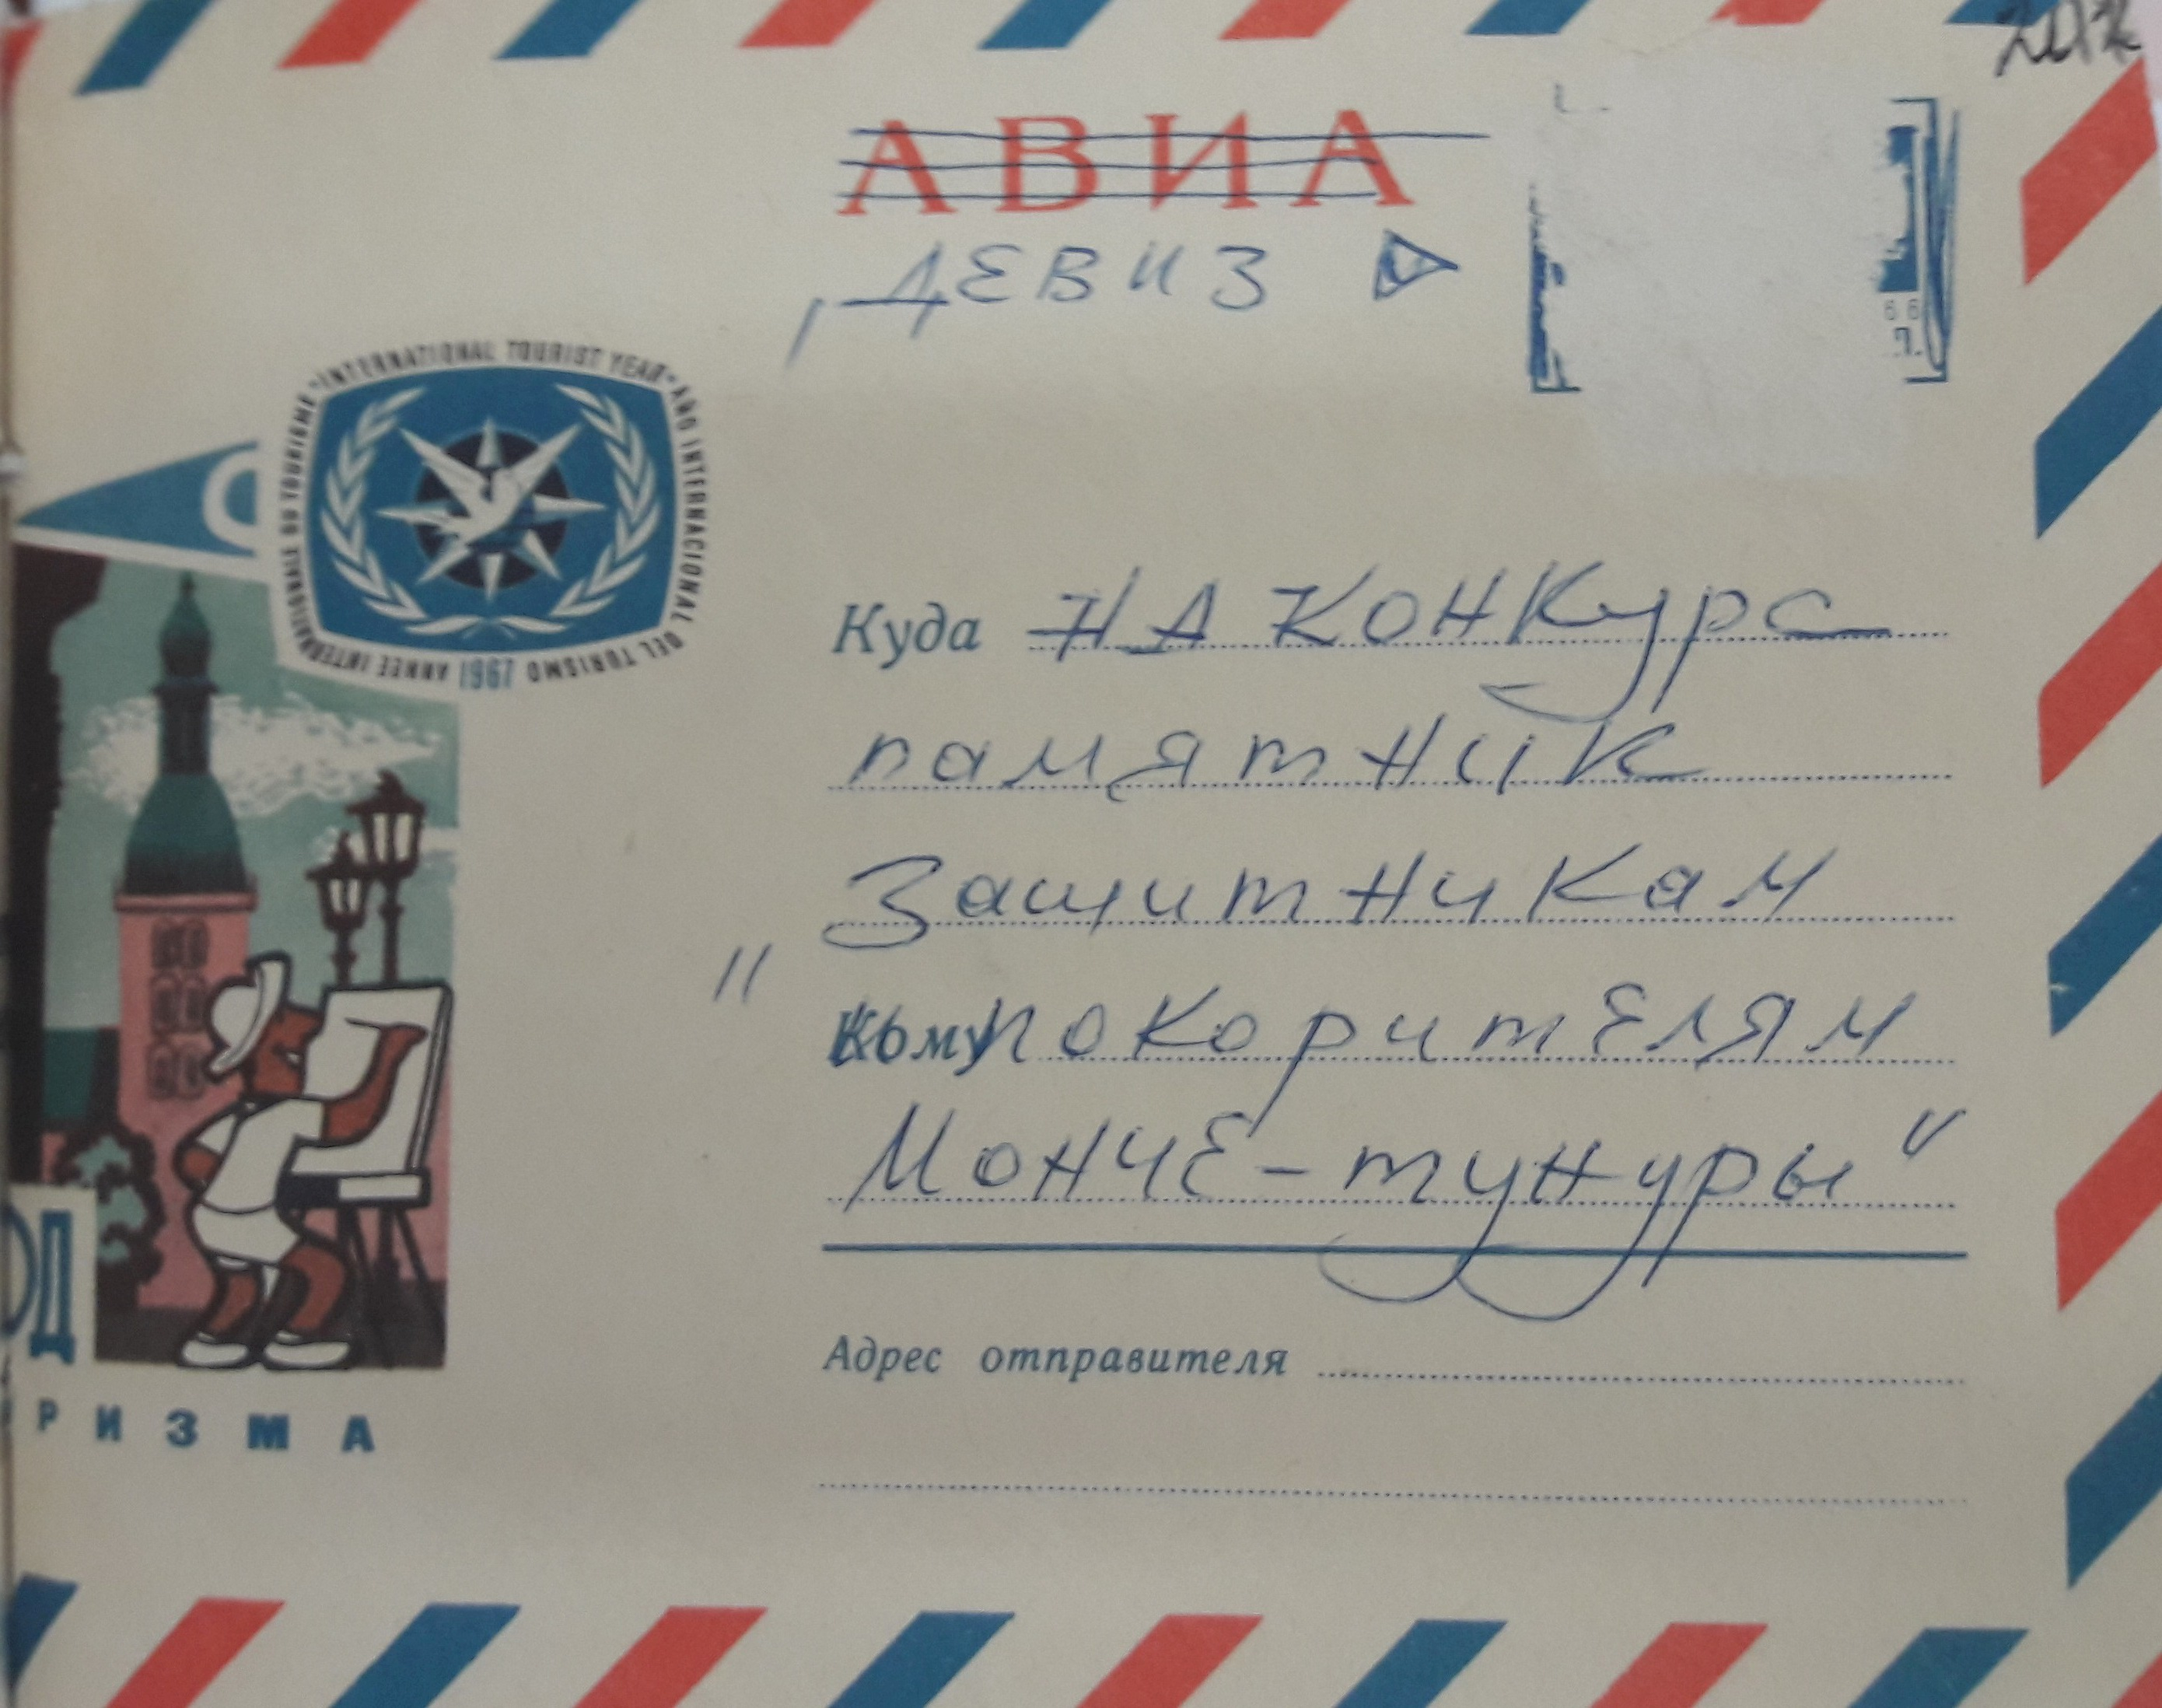 АВИА
ДЕВИЗ
66
"INTERNATIONAL TOURIST YEAR" AÑO INTERNACIONAL DEL TURISMO 1967 ANNEE INTERNATIONALE DU TOURISME
Куда НА Конкурс
памятник
Защитникам
"
Кому покорителям
Монче-тунуры"
Адрес отправителя
ОД
РИЗМА